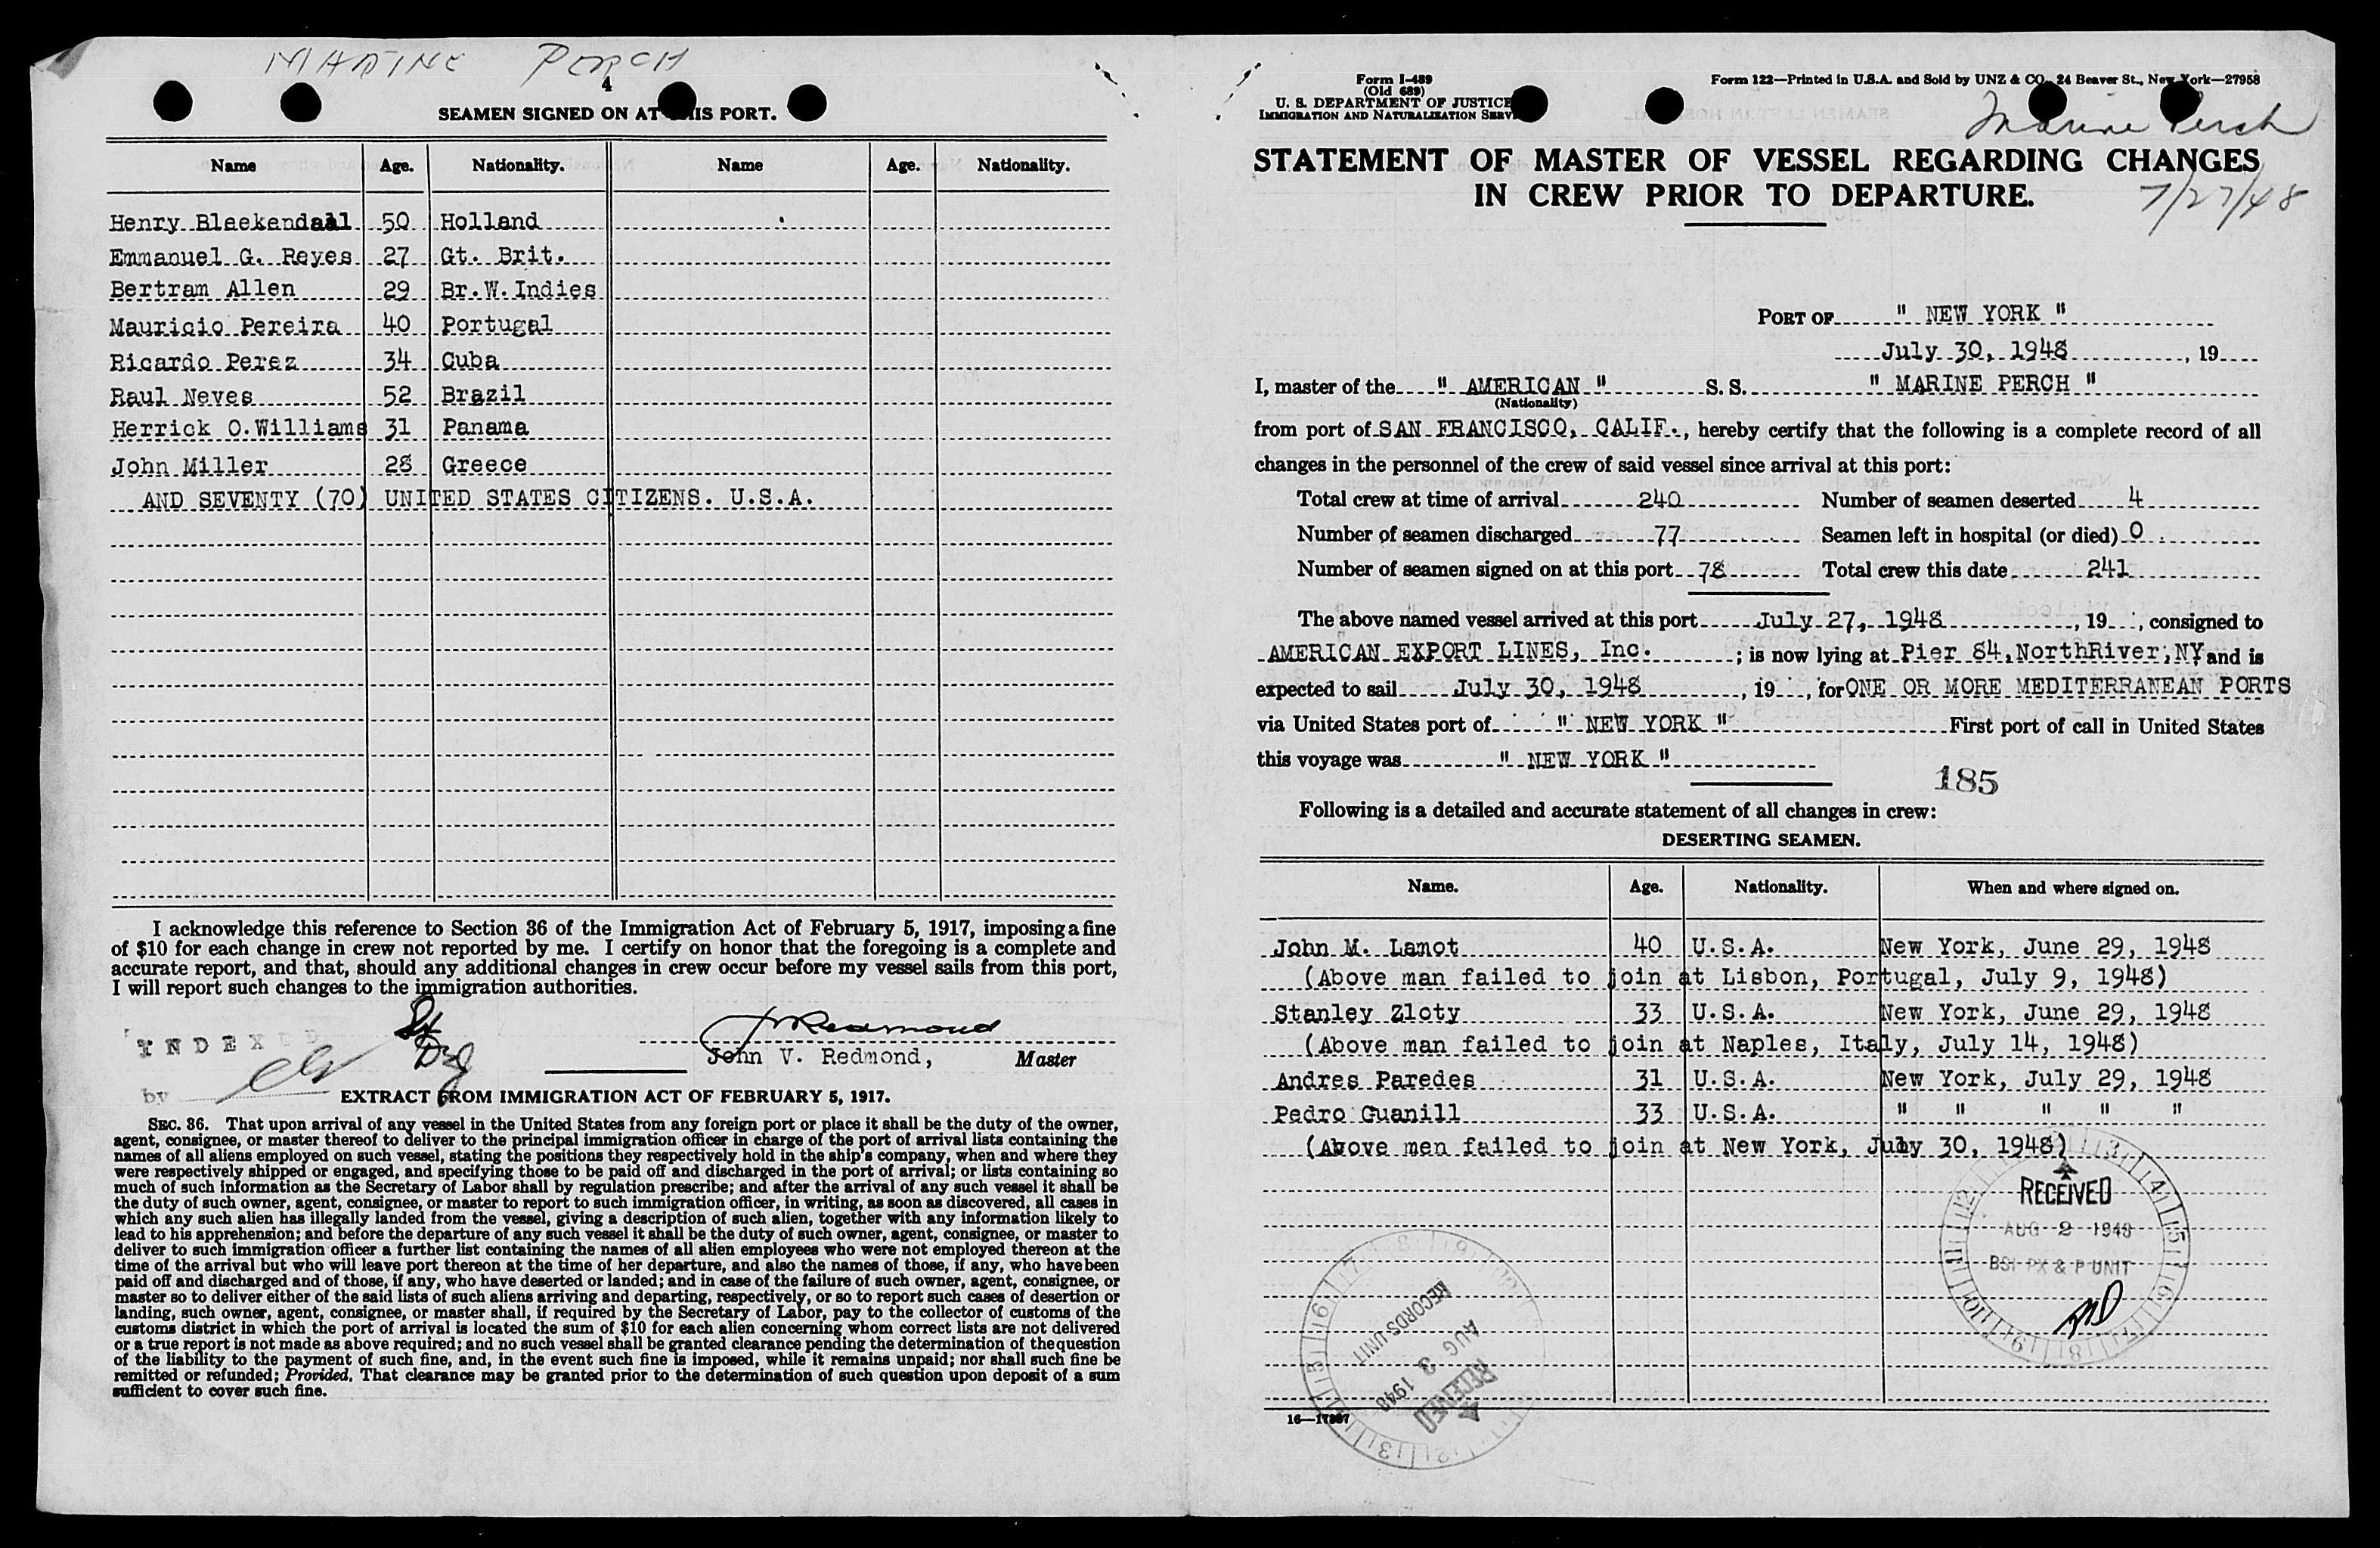 MARINE PERCH
4
SEAMEN SIGNED ON AT THIS PORT.
Name Age. Nationality. Name Age. Nationality.
Henry Blaekendaal 50 Holland
Emmanuel G. Reyes 27 Gt. Brit.
Bertram Allen 29 Br.W.Indies
Mauricio Pereira 40 Portugal
Ricardo Perez 34 Cuba
Raul Neves 52 Brazil
Herrick O.Williams 31 Panama
John Miller 28 Greece
AND SEVENTY (70) UNITED STATES CITIZENS. U.S.A.
I acknowledge this reference to Section 36 of the Immigration Act of February 5, 1917, imposing a fine
of $10 for each change in crew not reported by me. I certify on honor that the foregoing is a complete and
accurate report, and that, should any additional changes in crew occur before my vessel sails from this port,
I will report such changes to the immigration authorities.
INDEXED
by
JVRedmond
John V. Redmond, Master
EXTRACT FROM IMMIGRATION ACT OF FEBRUARY 5, 1917.
SEC. 36. That upon arrival of any vessel in the United States from any foreign port or place it shall be the duty of the owner,
agent, consignee, or master thereof to deliver to the principal immigration officer in charge of the port of arrival lists containing the
names of all aliens employed on such vessel, stating the positions they respectively hold in the ship's company, when and where they
were respectively shipped or engaged, and specifying those to be paid off and discharged in the port of arrival; or lists containing so
much of such information as the Secretary of Labor shall by regulation prescribe; and after the arrival of any such vessel it shall be
the duty of such owner, agent, consignee, or master to report to such immigration officer, in writing, as soon as discovered, all cases in
which any such alien has illegally landed from the vessel, giving a description of such alien, together with any information likely to
lead to his apprehension; and before the departure of any such vessel it shall be the duty of such owner, agent, consignee, or master to
deliver to such immigration officer a further list containing the names of all alien employees who were not employed thereon at the
time of the arrival but who will leave port thereon at the time of her departure, and also the names of those, if any, who have been
paid off and discharged and of those, if any, who have deserted or landed; and in case of the failure of such owner, agent, consignee, or
master so to deliver either of the said lists of such aliens arriving and departing, respectively, or so to report such cases of desertion or
landing, such owner, agent, consignee, or master shall, if required by the Secretary of Labor, pay to the collector of customs of the
customs district in which the port of arrival is located the sum of $10 for each alien concerning whom correct lists are not delivered
or a true report is not made as above required; and no such vessel shall be granted clearance pending the determination of the question
of the liability to the payment of such fine, and, in the event such fine is imposed, while it remains unpaid; nor shall such fine be
remitted or refunded; Provided, That clearance may be granted prior to the determination of such question upon deposit of a sum
sufficient to cover such fine.
Form I-489
(Old 689)
U. S. DEPARTMENT OF JUSTICE
IMMIGRATION AND NATURALIZATION SERV
Form 122—Printed in U.S.A. and Sold by UNZ & CO., 24 Beaver St., New York—27958
Marine Perch
STATEMENT OF MASTER OF VESSEL REGARDING CHANGES
IN CREW PRIOR TO DEPARTURE.
7/27/48
PORT OF " NEW YORK "
July 30, 1948, 19
I, master of the " AMERICAN " S. S. " MARINE PERCH "
(Nationality)
from port of SAN FRANCISCO, CALIF., hereby certify that the following is a complete record of all
changes in the personnel of the crew of said vessel since arrival at this port:
Total crew at time of arrival 240 Number of seamen deserted 4
Number of seamen discharged 77 Seamen left in hospital (or died) 0
Number of seamen signed on at this port 78 Total crew this date 241
The above named vessel arrived at this port July 27, 1948, 19 , consigned to
AMERICAN EXPORT LINES, Inc. ; is now lying at Pier 84,NorthRiver,NY and is
expected to sail July 30, 1948, 19 , for ONE OR MORE MEDITERRANEAN PORTS
via United States port of " NEW YORK " First port of call in United States
this voyage was " NEW YORK "
185
Following is a detailed and accurate statement of all changes in crew:
DESERTING SEAMEN.
Name. Age. Nationality. When and where signed on.
John M. Lamot 40 U.S.A. New York, June 29, 1948
(Above man failed to join at Lisbon, Portugal, July 9, 1948)
Stanley Zloty 33 U.S.A. New York, June 29, 1948
(Above man failed to join at Naples, Italy, July 14, 1948)
Andres Paredes 31 U.S.A. New York, July 29, 1948
Pedro Guanill 33 U.S.A. " " " " "
(Above men failed to join at New York, July 30, 1948)
RECEIVED
AUG 2 1948
BSI PX & P UNIT
RECORDS UNIT
AUG 3 1948
RECEIVED
16—17387